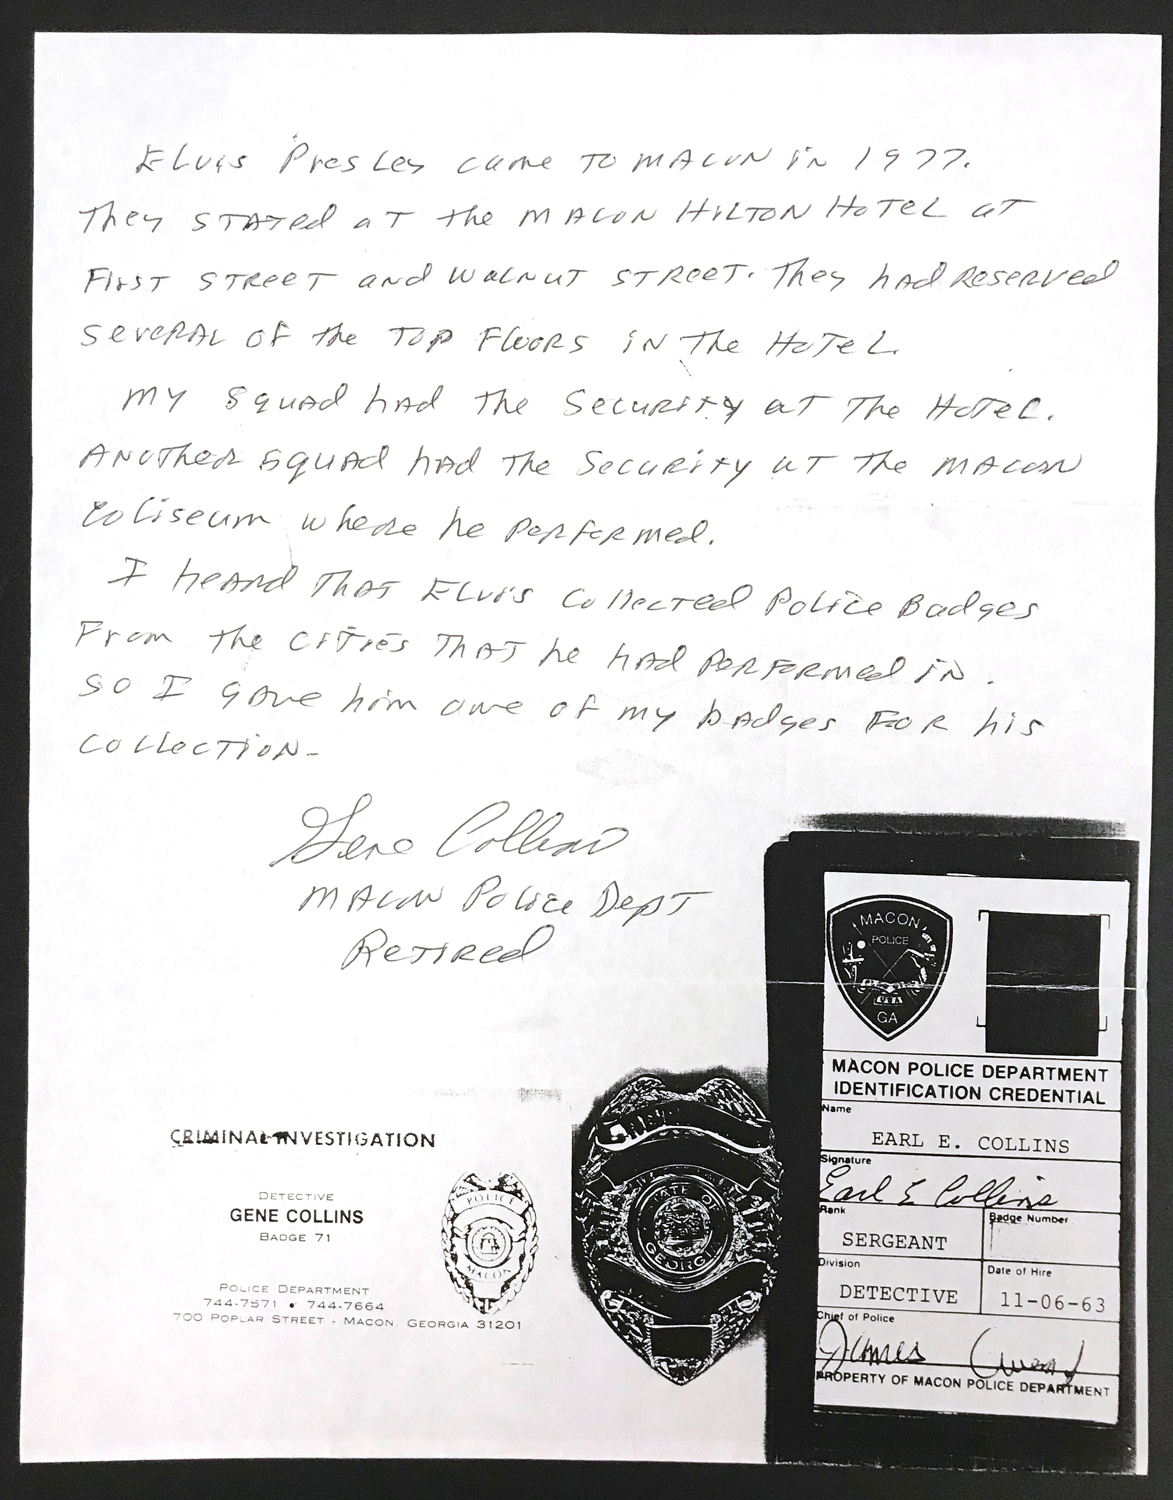 Elvis Presley came to Macon in 1977.
They stayed at the Macon Hilton Hotel at
First Street and Walnut Street. They had reserved
several of the top floors in the Hotel.
My squad had the security at the Hotel.
Another squad had the security at the Macon
Coliseum where he performed.
I heard that Elvis collected Police Badges
From the cities that he had performed in.
So I gave him one of my badges for his
collection-
Gene Collins
Macon Police Dept
Retired
MACON
POLICE
USA
GA
MACON POLICE DEPARTMENT
IDENTIFICATION CREDENTIAL
Name
EARL E. COLLINS
Signature
Earl E Collins
Rank
Badge Number
SERGEANT
Division
Date of Hire
DETECTIVE
11-06-63
Chief of Police
James
PROPERTY OF MACON POLICE DEPARTMENT
CRIMINAL INVESTIGATION
DETECTIVE
GENE COLLINS
BADGE 71
POLICE DEPARTMENT
744-7571 • 744-7664
700 POPLAR STREET - MACON, GEORGIA 31201
POLICE
MACON
STATE OF
GEORGIA